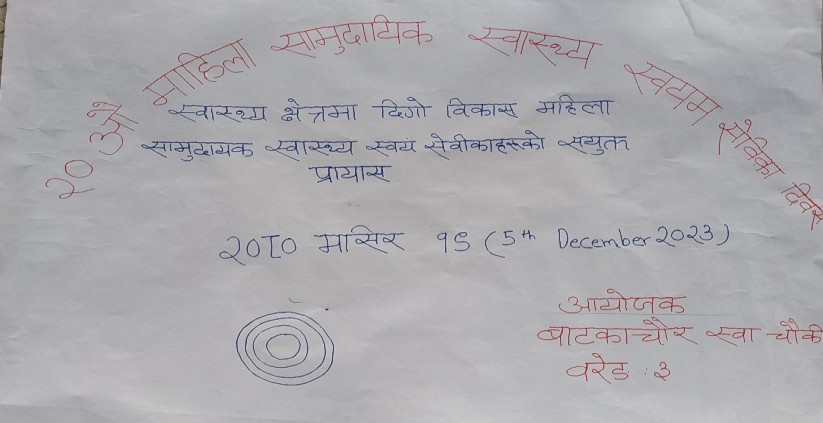 २० औं माहिला सामुदायिक स्वास्थ्य स्वयम सेविका दिवस
स्वास्थ्य क्षेत्रमा दिगो विकास महिला
सामुदायक स्वास्थ्य स्वयं सेवीकाहरूको सयुक्त
प्रायास
२०८० मासिर १९ (5th December 2023)
आयोजक
बाटकाचौर स्वा चौकी
वरेङ : ३